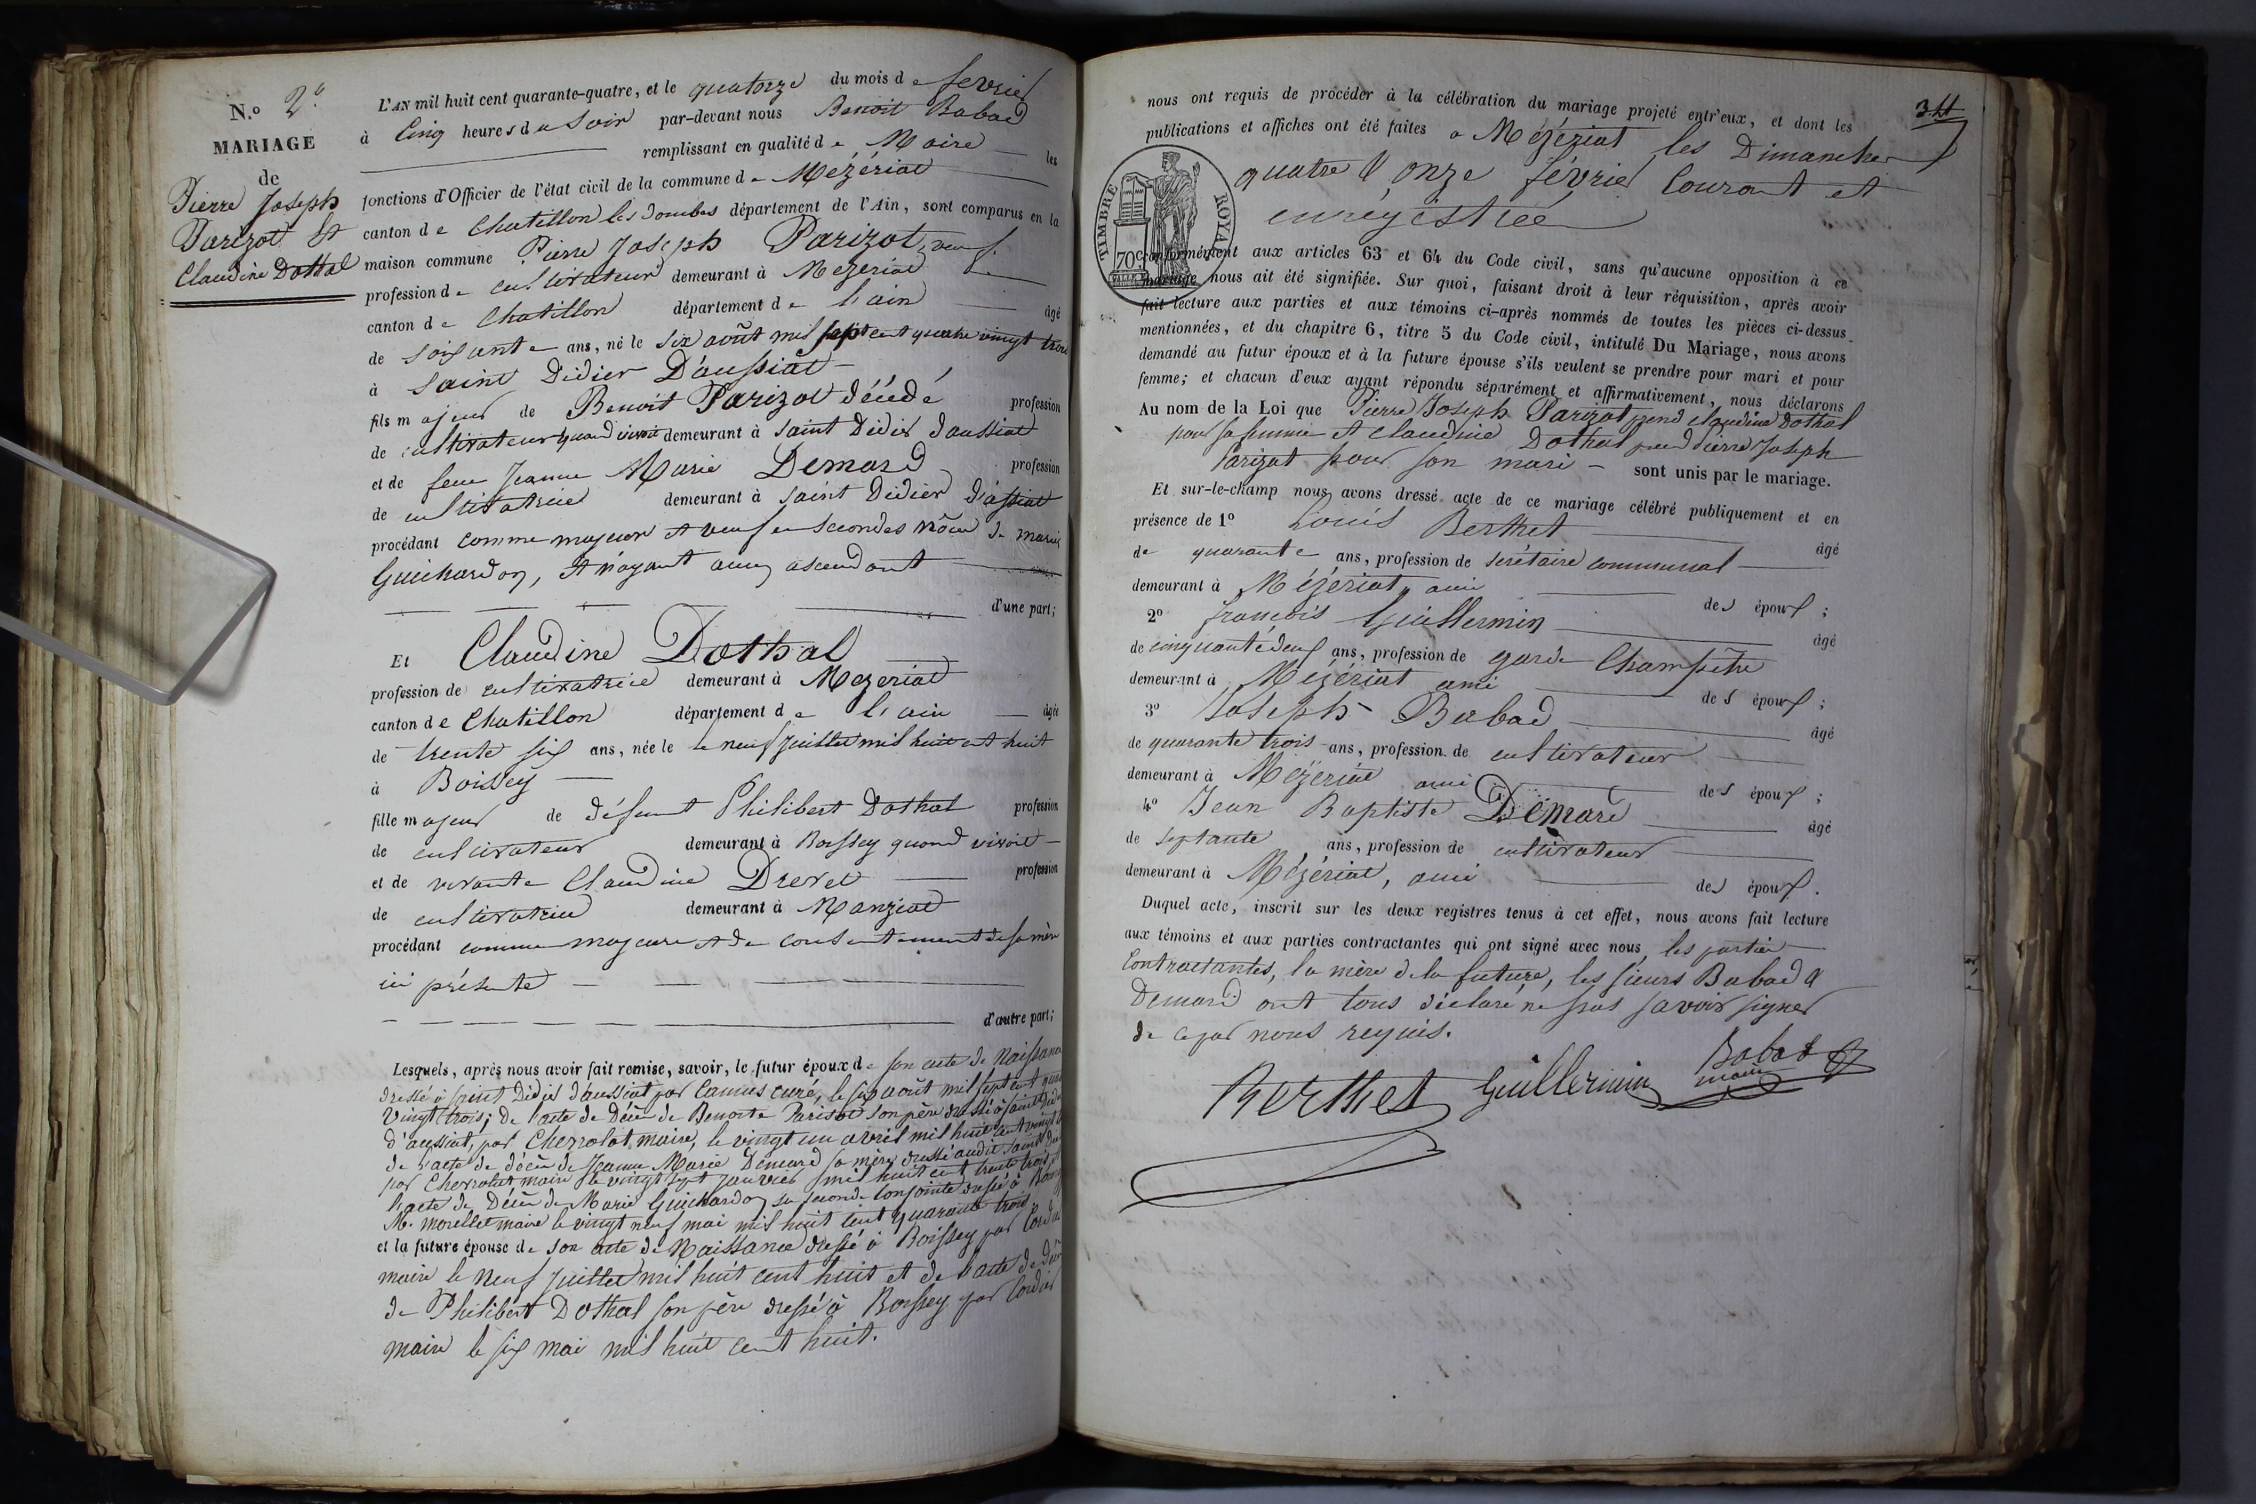 N.o 2.e
MARIAGE
de
Pierre Joseph
Parizot et
Claudine Dothal
L'AN mil huit cent quarante-quatre, et le quatorze du mois de fevrier
à Cinq heures du Soir par-devant nous Benoit Babad
remplissant en qualité de Maire les
fonctions d'Officier de l'état civil de la commune de Mézériat
canton de Chatillon les Dombes département de l'Ain, sont comparus en la
maison commune Pierre Joseph Parizot, veuf.
profession de cultivateur demeurant à Mezeriat
canton de Chatillon département de l'ain âgé
de soixante ans, né le six août mil sept cent quatre vingt trois
à Saint Didier D'aussiat
fils majeur de Benoit Parizot décédé profession
de cultivateur quand vivait demeurant à Saint Didier d'aussiat
et de feue Jeanne Marie Demard profession
de cultivatrice demeurant à Saint Didier d'aussiat
procédant comme majeur et veuf en secondes nôces de marie
Guichardon, et n'ayant aucun ascendant
d'une part;
Et Claudine Dothal
profession de cultivatrice demeurant à Mezeriat
canton de Chatillon département de l'ain âgée
de trente six ans, née le le neuf Juillet mil huit cent huit
à Boissey
fille majeur de défunt Philibert Dothal profession
de cultivateur demeurant à Boissey quand vivoit
et de vivante Claudine Drevet profession
de cultivatrice demeurant à Manziat
procédant comme majeure et de consentement de sa mère
ici présente
d'autre part;
Lesquels, après nous avoir fait remise, savoir, le futur époux de son acte de Naissance
dressé à Saint Didier d'aussiat par Camus curé, le six août mil sept cent quatre
vingt trois; de l'acte de Décès de Benoite Parisot son père dressé à Saint Didier
d'aussiat, par Chevrolat maire, le vingt un avril mil huit cent vingt
de l'acte de décès de Jeanne Marie Demard sa mère dressé audit Saint
par Chevrolat maire le vingt sept janvier mil huit cent trente trois
l'acte de Décès de Marie Guichardon sa seconde conjointe dressé à
M. Morellet maire le vingt neuf mai mil huit cent quarante trois.
et la future épouse de son acte de Naissance dressé à Boissey par Cordier
maire le neuf Juillet mil huit cent huit et de l'acte de Décès
de Philibert Dothal son père dressé à Boissey par Cordier
maire le six mai mil huit cent huit.
34
nous ont requis de procéder à la célébration du mariage projeté entr'eux, et dont les
publications et affiches ont été faites a Mézériat les Dimanches
quatre & onze février Courant et
enregistrée
TIMBRE ROYAL
70c
conformément aux articles 63 et 64 du Code civil, sans qu'aucune opposition à ce
mariage nous ait été signifiée. Sur quoi, faisant droit à leur réquisition, après avoir
fait lecture aux parties et aux témoins ci-après nommés de toutes les pièces ci-dessus
mentionnées, et du chapitre 6, titre 5 du Code civil, intitulé Du Mariage, nous avons
demandé au futur époux et à la future épouse s'ils veulent se prendre pour mari et pour
femme; et chacun d'eux ayant répondu séparément et affirmativement, nous déclarons
Au nom de la Loi que Pierre Joseph Parizot prend claudine Dothal
pour sa femme et claudine Dothal prend Pierre Joseph
Parizot pour son mari – sont unis par le mariage.
Et sur-le-champ nous avons dressé acte de ce mariage célébré publiquement et en
présence de 1o Louis Berthet âgé
de quarante ans, profession de secrétaire communal
demeurant à Mézériat, ami des époux;
2o françois Guillermin âgé
de cinquante deux ans, profession de garde Champêtre
demeurant à Mézériat ami des époux;
3o Joseph Babad âgé
de quarante trois ans, profession de cultivateur
demeurant à Mézériat ami des époux;
4o Jean Baptiste Démard âgé
de septante ans, profession de cultivateur
demeurant à Mézériat, ami des époux.
Duquel acte, inscrit sur les deux registres tenus à cet effet, nous avons fait lecture
aux témoins et aux parties contractantes qui ont signé avec nous, les parties
Contractantes, la mère de la future, les sieurs Babad &
Demard ont tous déclaré ne pas savoir signer
de ce par nous requis.
Berthet Guillermin Babad
maire